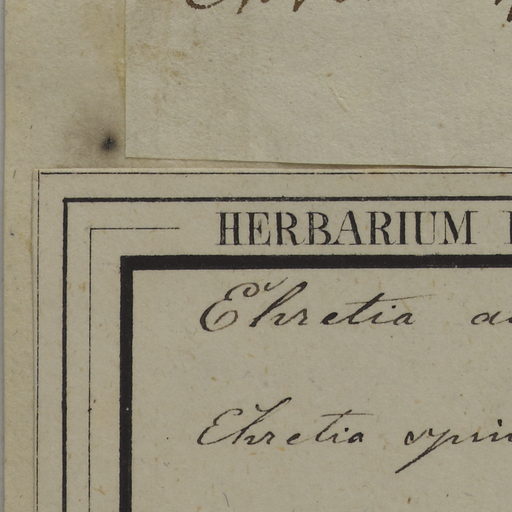 HERBARIUM
Ehretia
Ehretia